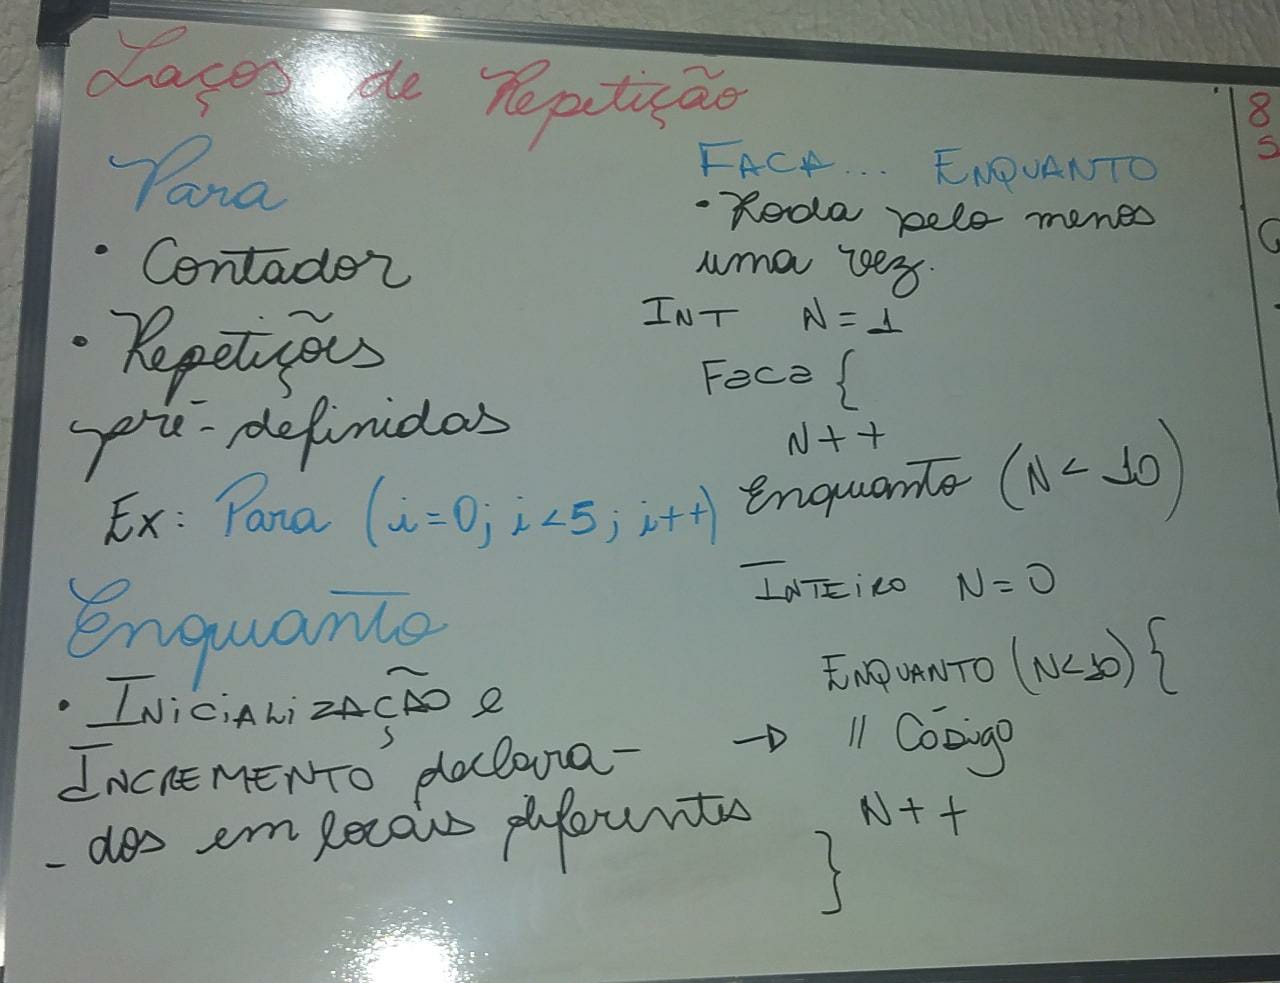 Laços de Repetição
Para
• Contador
• Repetições
pré-definidas
Ex: Para (i=0; i<5; i++)
Enquanto
• Inicialização e
Incremento declara-
- dos em locais diferentes
Faca... Enquanto
• Roda pelo menos
uma vez.
Int N = 1
Faca {
N++
Enquanto (N < 10)
Inteiro N = 0
Enquanto (N<10) {
→ // Código
N++
}
8
S